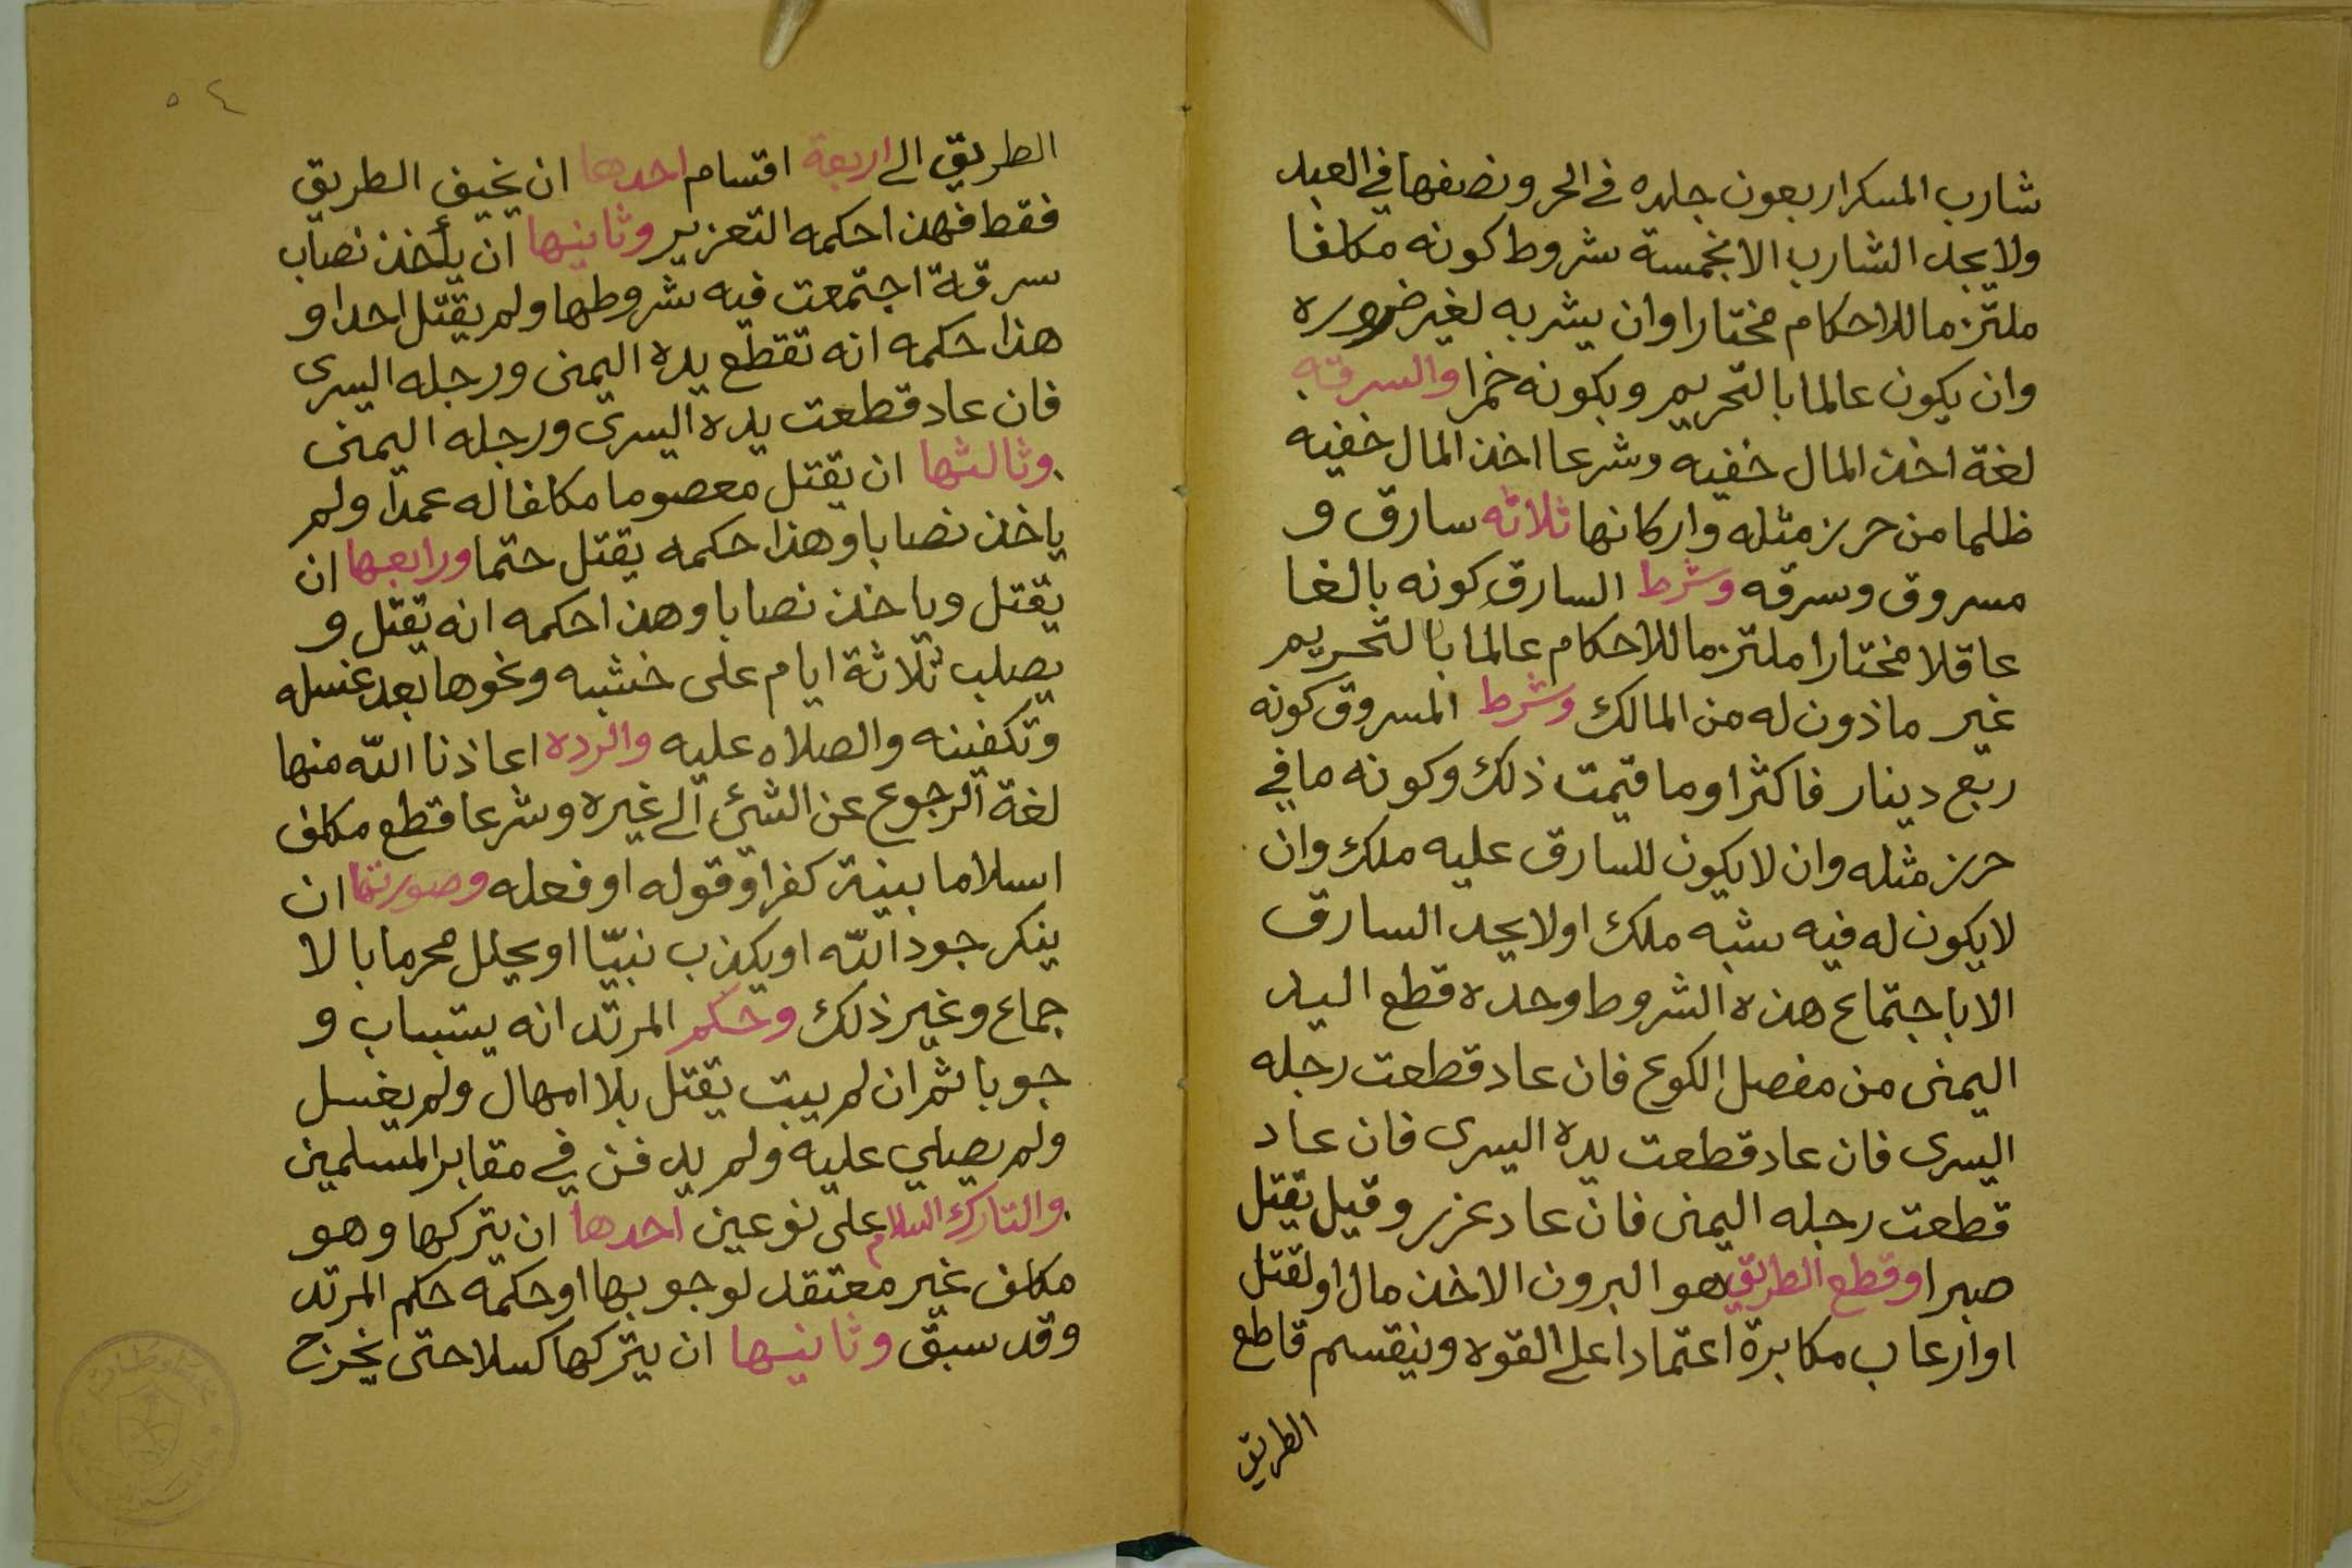 شارب المسكر اربعون جلده في الحر ونصفها في العبد
ولا يحد الشارب الا بخمسة شروط كونه مكلفا
ملتزما للاحكام مختارا وان يشربه لغير ضروره
وان يكون عالما بالتحريم وبكونه خمرا والسرقه
لغة اخذ المال خفيه وشرعا اخذ المال خفيه
ظلما من حرز مثله واركانها ثلاثه سارق و
مسروق وسرقه وشرط السارق كونه بالغا
عاقلا مختارا ملتزما للاحكام عالما بالتحريم
غير ماذون له من المالك وشرط المسروق كونه
ربع دينار فاكثر اوما قيمت ذلك وكونه مافي
حرز مثله وان لا يكون للسارق عليه ملك وان
لا يكون له فيه شبه ملك اولا يحد السارق
الا باجتماع هذه الشروط وحده قطع اليد
اليمنى من مفصل الكوع فان عاد قطعت رجله
اليسرى فان عاد قطعت يده اليسرى فان عاد
قطعت رجله اليمنى فان عاد عزر وقيل يقتل
صبرا وقطع الطريق هو البرون الاخذ مال اولقتل
اوارعاب مكابرة اعتمادا على القوه وينقسم قاطع
الطريق
٥٤
الطريق الى اربعة اقسام احدها ان يخيف الطريق
فقط فهذا حكمه التعزير وثانيها ان يأخذ نصاب
سرقة اجتمعت فيه شروطها ولم يقتل احدا و
هذا حكمه انه تقطع يده اليمنى ورجله اليسرى
فان عاد قطعت يده اليسرى ورجله اليمنى
وثالثها ان يقتل معصوما مكافا له عمدا ولم
ياخذ نصابا وهذا حكمه يقتل حتما ورابعها ان
يقتل وياخذ نصابا وهذا حكمه انه يقتل و
يصلب ثلاثة ايام على خشبه ونحوها بعد غسله
وتكفينه والصلاه عليه والرده اعاذنا الله منها
لغة الرجوع عن الشئ الى غيره وشرعا قطع مكلف
اسلاما بنية كفر اوقوله اوفعله وصورتها ان
ينكر جود الله اويكذب نبيّا اويحلل محرما بالا
جماع وغير ذلك وحكم المرتد انه يستباب و
جوبا ثم ان لم يبت يقتل بلا امهال ولم يغسل
ولم يصلي عليه ولم يدفن في مقابر المسلمين
والتارك السلام على نوعين احدها ان يتركها وهو
مكلف غير معتقد لوجوبها اوحكمه حكم المرتد
وقد سبق وثانيها ان يتركها كسلا حتى يخرج